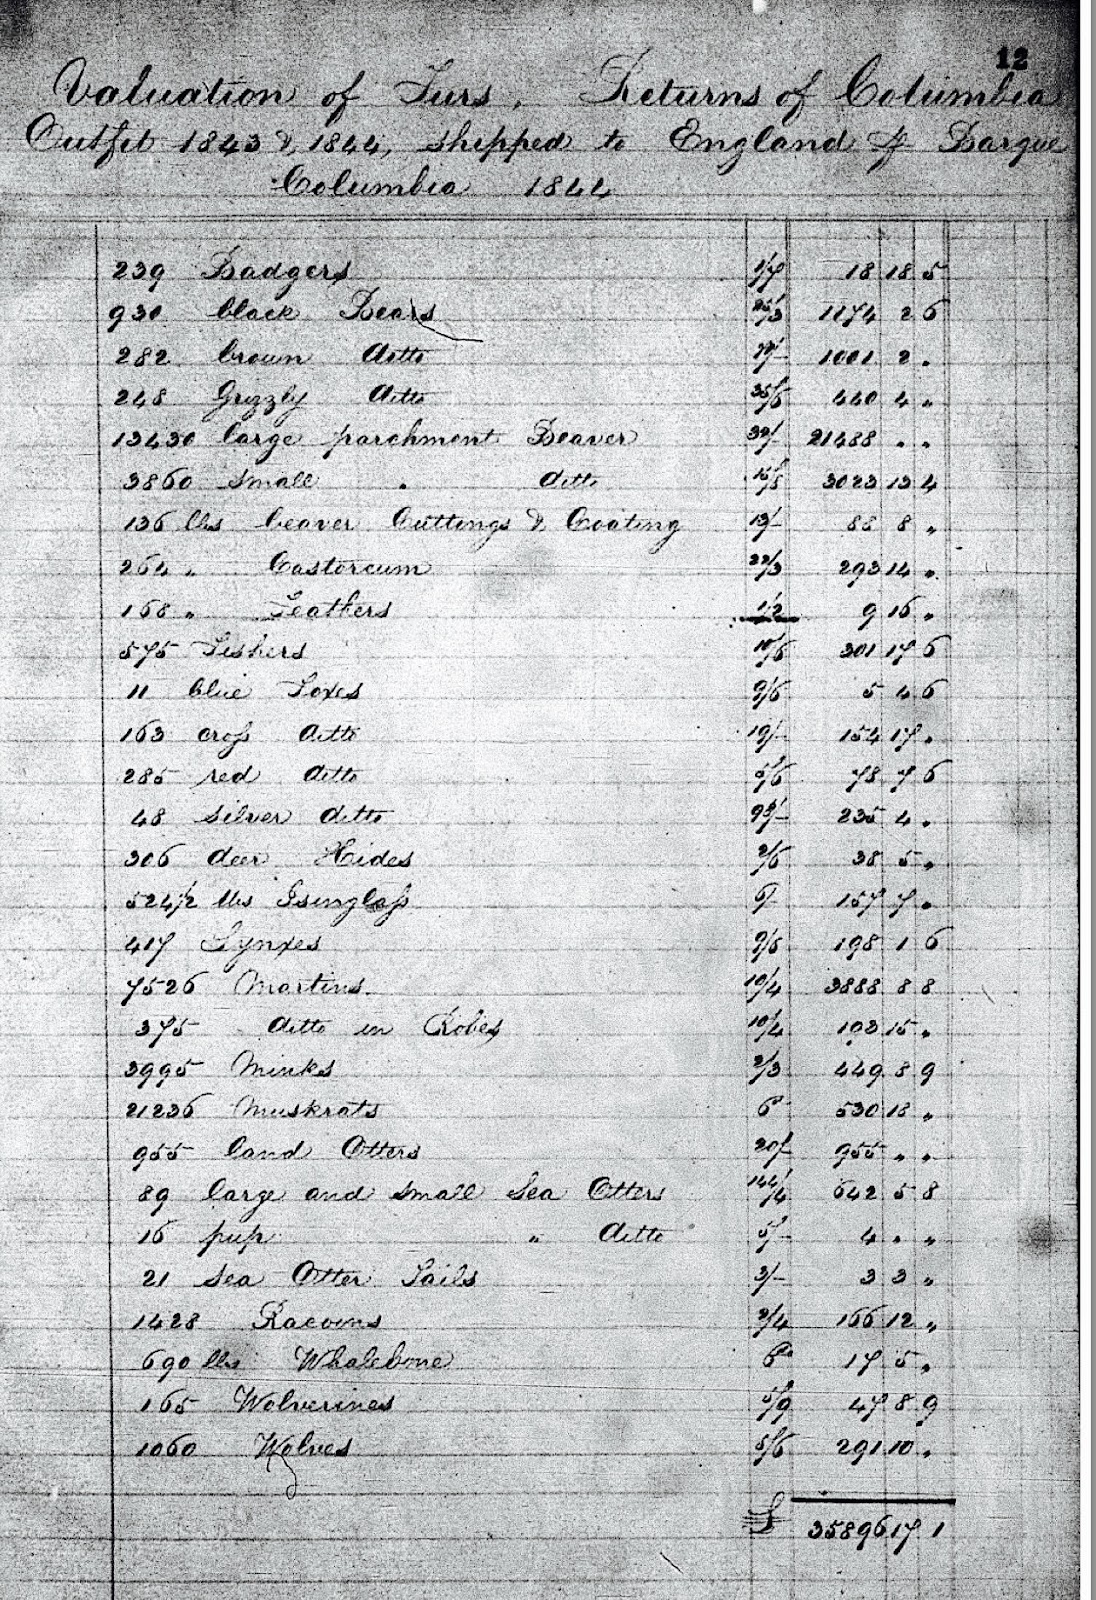 12
Valuation of Furs, Returns of Columbia
Outfit 1843 & 1844, shipped to England ⅌ Barque
Columbia 1844
239 Badgers 1/7 18 18 5
930 black Bears 25/3 1174 2 6
282 brown ditto 71/- 1001 2 "
248 Grizzly ditto 35/6 440 4 "
13430 large parchment Beaver 32/- 21488 " "
3860 small " ditto 15/8 3023 13 4
136 lbs beaver Cuttings & Coating 13/- 88 8 "
264 " Castoreum 22/3 293 14 "
168 " Feathers 1/2 9 16 "
575 Fishers 10/6 301 17 6
11 blue Foxes 9/6 5 4 6
163 cross ditto 19/- 154 17 "
285 red ditto 5/6 78 7 6
48 silver ditto 98/- 235 4 "
306 deer Hides 2/6 38 5 "
524 1/2 lbs Isinglass 6/- 157 7 "
417 Lynxes 9/6 198 1 6
7526 Martins 10/4 3888 8 8
375 ditto in Robes 10/4 193 15 "
3995 Minks 2/3 449 8 9
21236 Muskrats 6d 530 18 "
955 land Otters 20/- 955 " "
89 large and small Sea Otters 144/4 642 5 8
16 pup " ditto 5/- 4 " "
21 Sea Otter Tails 3/- 3 3 "
1428 Racoons 2/4 166 12 "
690 lbs Whalebone 6d 17 5 "
165 Wolverines 5/9 47 8 9
1060 Wolves 5/6 291 10 "
£ 35896 17 1